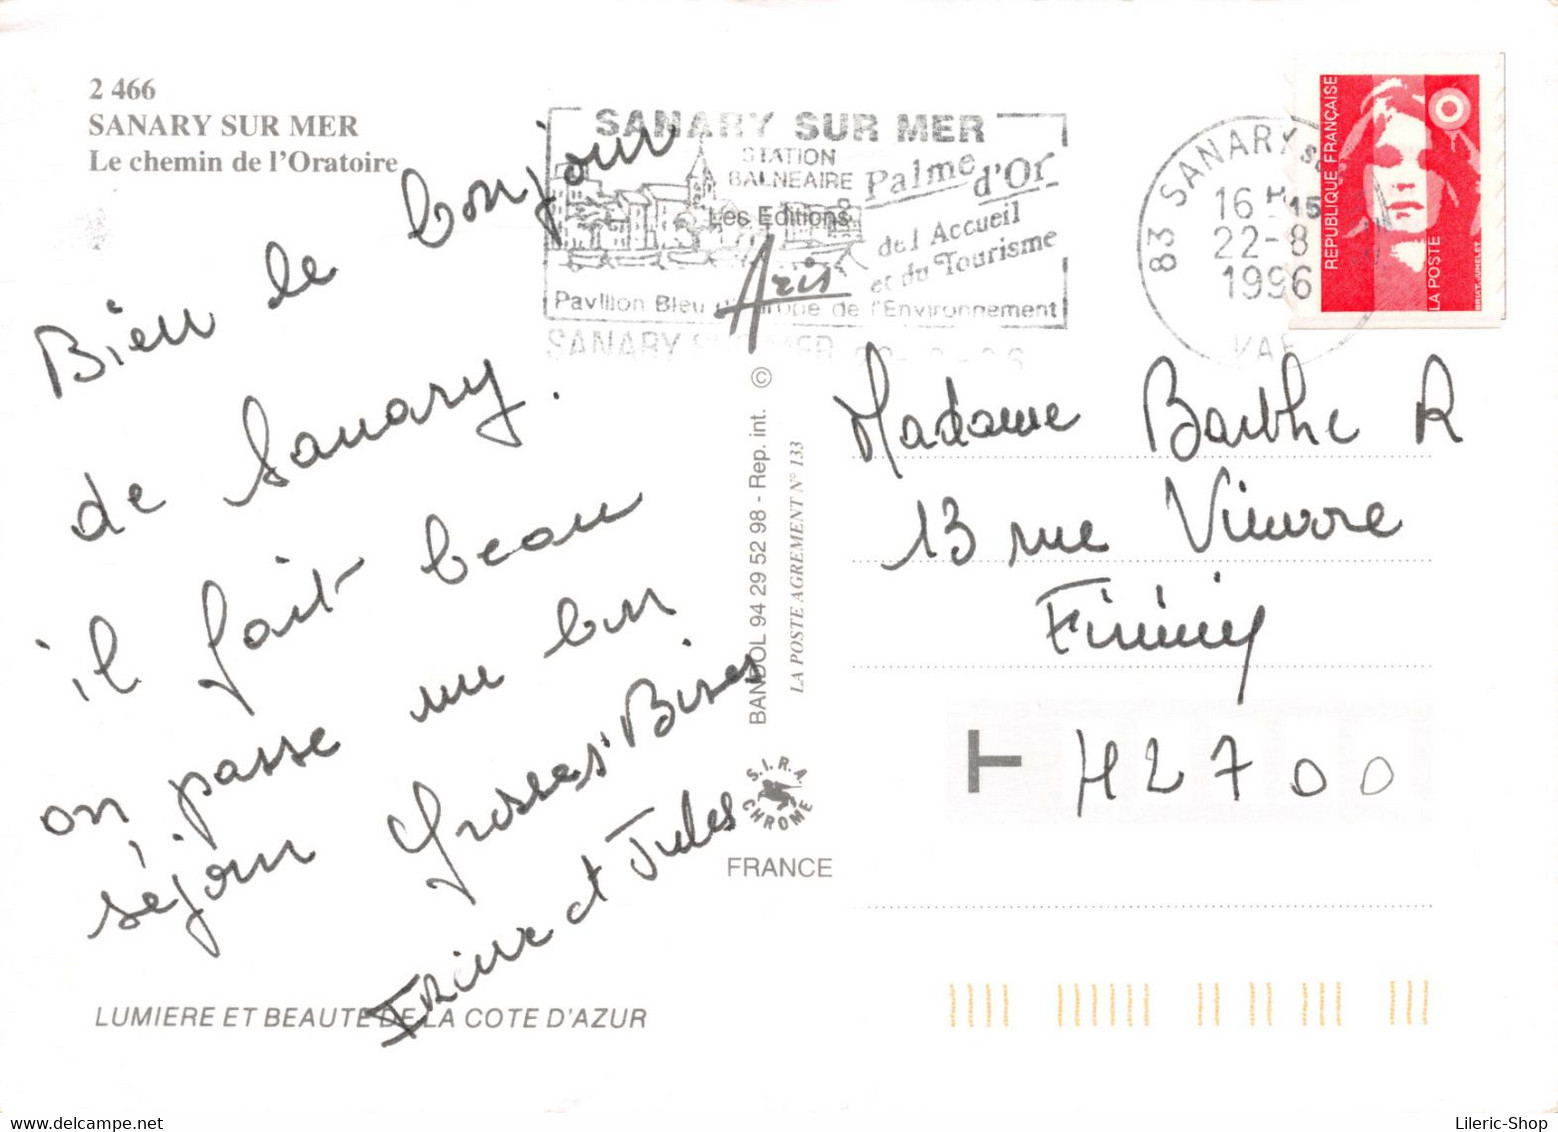 2 466
SANARY SUR MER
Le chemin de l'Oratoire
Bien le bonjour
de Sanary.
il fait beau
on passe un bon
séjour Grosses Bises
Irène et Jules
LUMIERE ET BEAUTE DE LA COTE D'AZUR
SANARY SUR MER
STATION
BALNEAIRE
Palme d'Or
de l'Accueil
et du Tourisme
Pavillon Bleu d'Europe de l'Environnement
SANARY SUR MER 22-8-96
Les Editions
Aris
BANDOL 94 29 52 98 - Rep. int. ©
LA POSTE AGREMENT N° 133
S.I.R.A.
CHROME
FRANCE
83 SANARY SUR
16 H 15
22-8
1996
VAR
REPUBLIQUE FRANÇAISE
LA POSTE
BRIAT-JUMELET
Madame Barthe R
13 rue
Firminy
T 42700
Lileric-Shop